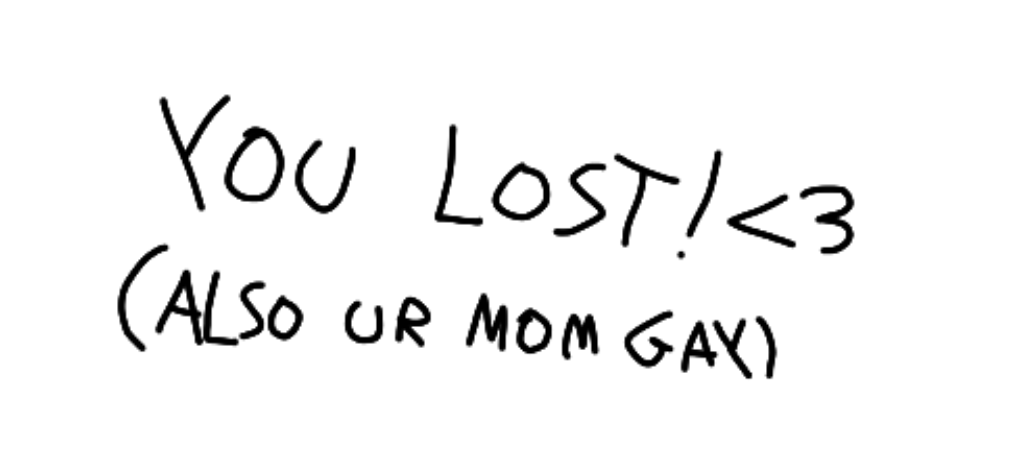 YOU LOST!<3
(ALSO UR MOM GAY)